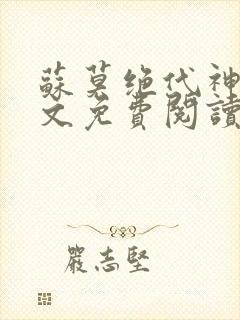 蘇莫绝代神
文免費閱讀
嚴志堅